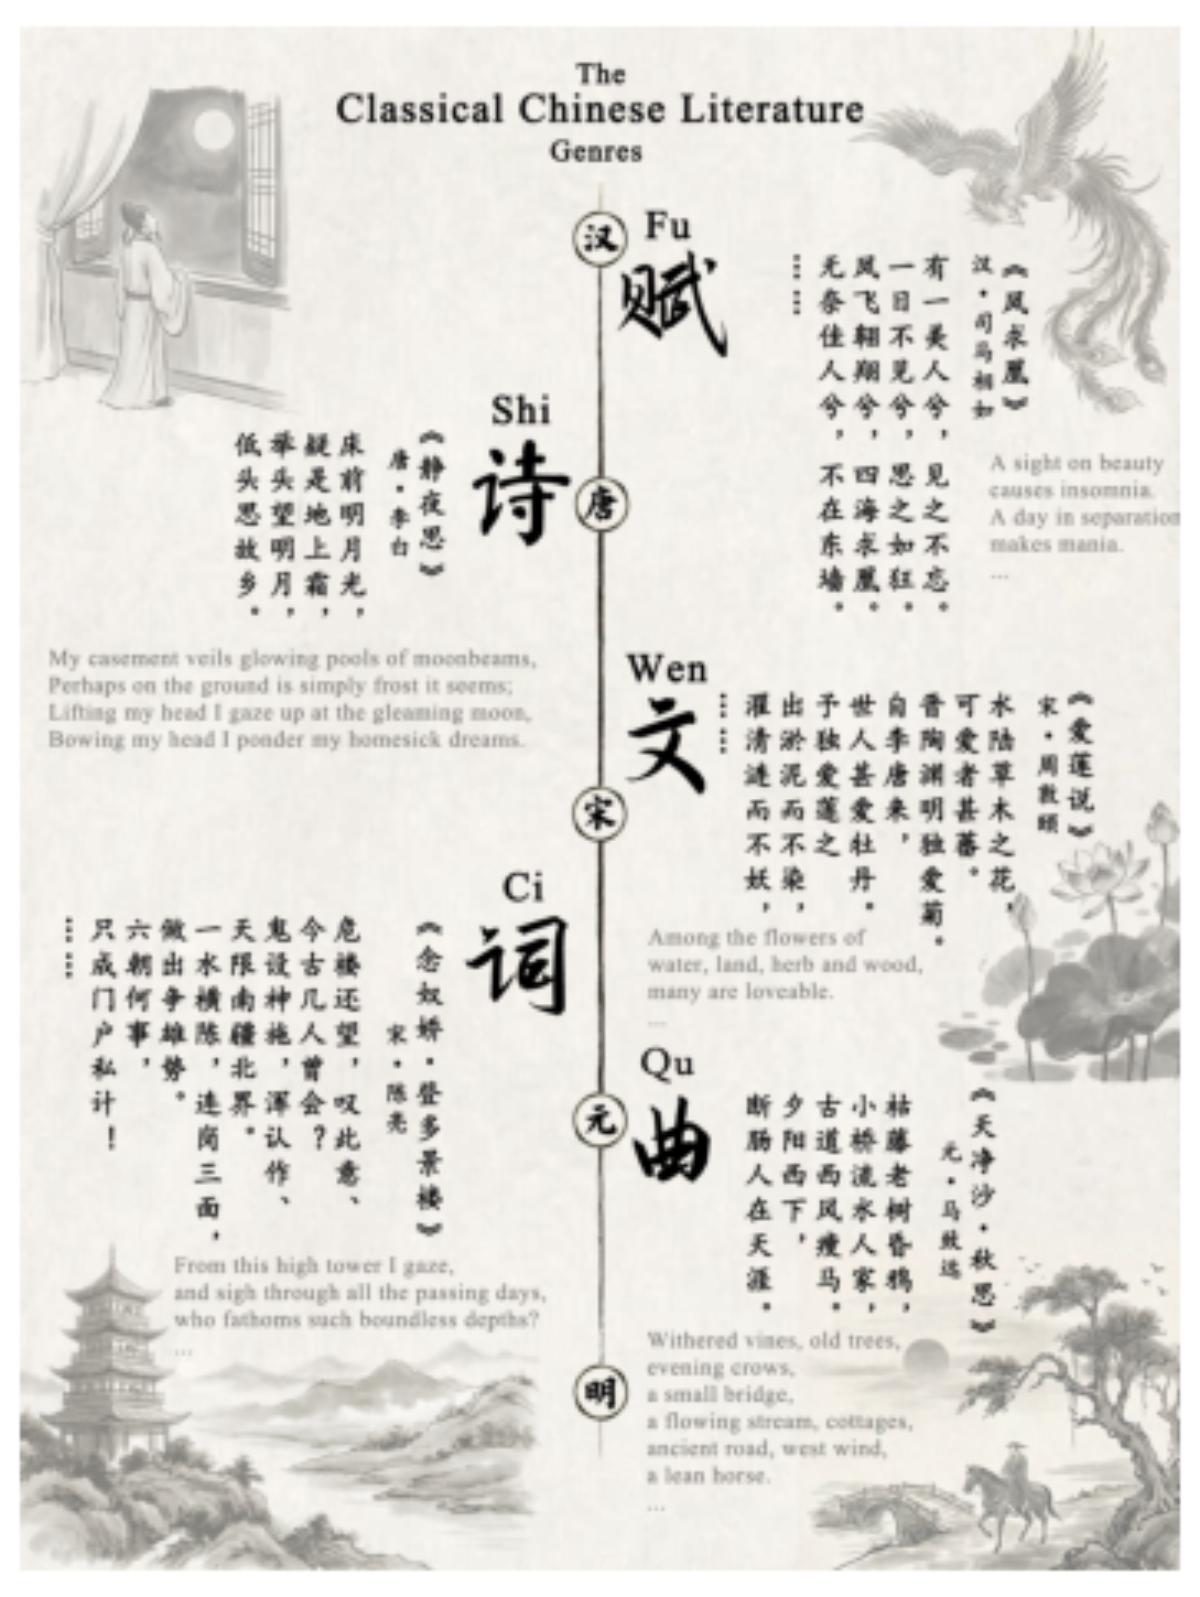 The
Classical Chinese Literature
Genres
汉
Fu
赋
《凤求凰》
汉·司马相如
有一美人兮，见之不忘。
一日不见兮，思之如狂。
凤飞翱翔兮，四海求凰。
无奈佳人兮，不在东墙。
……
A sight on beauty
causes insomnia.
A day in separation
makes mania.
...
Shi
诗
唐
《静夜思》
唐·李白
床前明月光，
疑是地上霜，
举头望明月，
低头思故乡。
My casement veils glowing pools of moonbeams,
Perhaps on the ground is simply frost it seems;
Lifting my head I gaze up at the gleaming moon,
Bowing my head I ponder my homesick dreams.
Wen
文
宋
《爱莲说》
宋·周敦颐
水陆草木之花，
可爱者甚蕃。
晋陶渊明独爱菊。
自李唐来，
世人甚爱牡丹。
予独爱莲之
出淤泥而不染，
濯清涟而不妖，
……
Among the flowers of
water, land, herb and wood,
many are loveable.
...
Ci
词
《念奴娇·登多景楼》
宋·陈亮
危楼还望，叹此意、
今古几人曾会？
鬼设神施，浑认作、
天限南疆北界。
一水横陈，连岗三面，
做出争雄势。
六朝何事，
只成门户私计！
……
From this high tower I gaze,
and sigh through all the passing days,
who fathoms such boundless depths?
...
Qu
曲
元
《天净沙·秋思》
元·马致远
枯藤老树昏鸦，
小桥流水人家，
古道西风瘦马。
夕阳西下，
断肠人在天涯。
Withered vines, old trees,
evening crows,
a small bridge,
a flowing stream, cottages,
ancient road, west wind,
a lean horse.
...
明